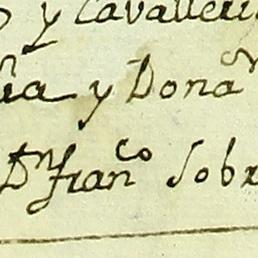 y Cavalleri
y Dona
Dn Franco Sobr